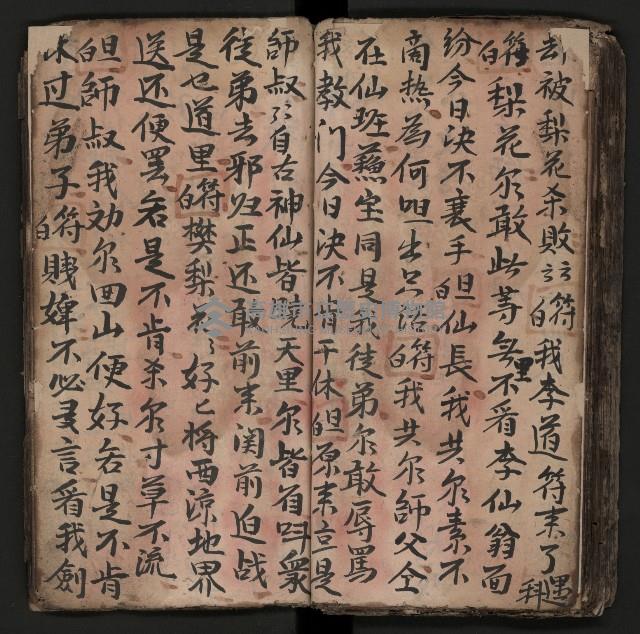 却被梨花杀敗 符白 我李道符来了 遇科
符白 梨花尔敢此等無里不看李仙翁面
纷今日决不襄手 旦白 仙長我共尔素不
商热為何呾出 符白 我共尔師父仝
在仙班蘓宝同是我徒弟尔敢辱罵
我教门今日决不肯干休 旦白 原来立是
師叔 自古神仙皆 天里尔皆有 衆
徒弟去邪归正还敢前来関前迫战
是乜道里 符白 樊梨花 好亡将西涼地界
送还便罢若是不肯杀尔寸草不流
旦白 師叔我劝尔回山便好若是不肯
水过弟子 符白 賎婢不必多言看我劍
高雄市立歷史博物館